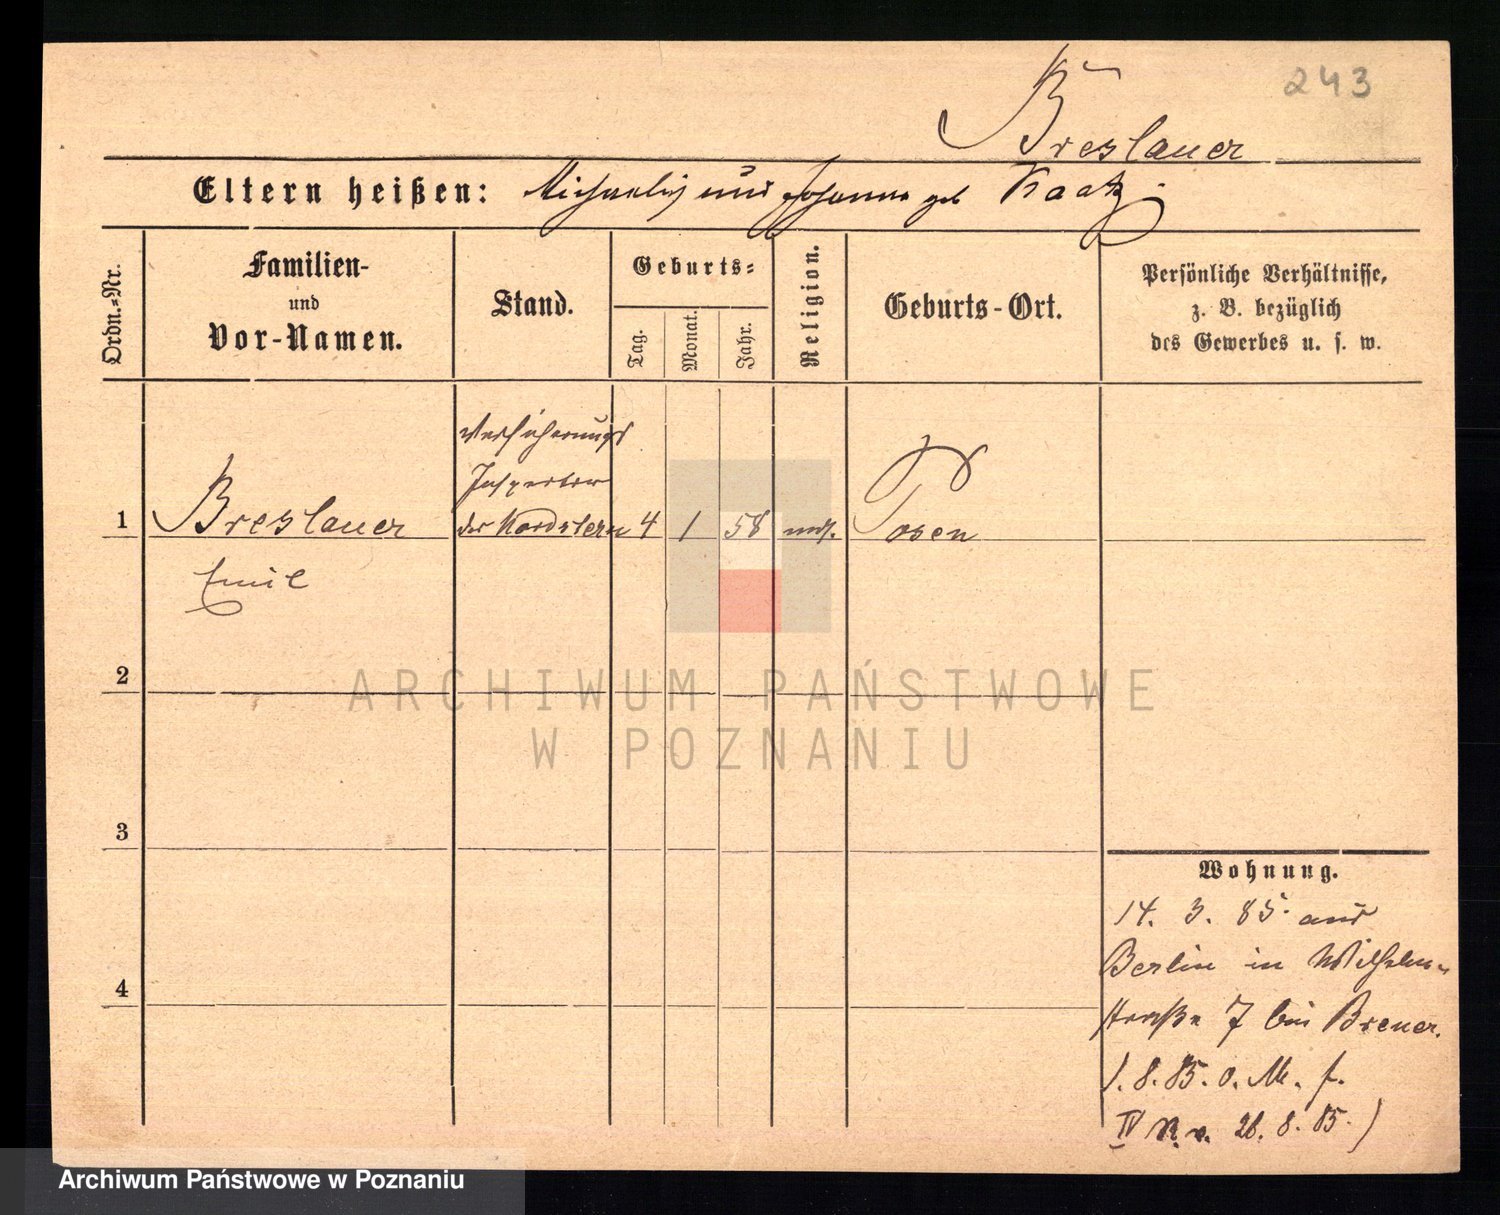 243
Breslauer
Eltern heißen: Michaelis und Johanna geb Kaatz.
Ordn.=Nr.
Familien-
und
Vor-Namen.
Stand.
Geburts=
Tag.
Monat.
Jahr.
Religion.
Geburts-Ort.
Persönliche Verhältnisse,
z. B. bezüglich
des Gewerbes u. s. w.
Versicherungs
Inspector
1 Breslauer der Nordstern 4 1 58 mos. Posen
Emil
2
ARCHIWUM PAŃSTWOWE
W POZNANIU
3
Wohnung.
14. 3. 85. aus
Berlin in Wilhelm-
straße 7 bei
1. 8. 85. o. M. f.
IV 26. 8. 85.)
4
Archiwum Państwowe w Poznaniu